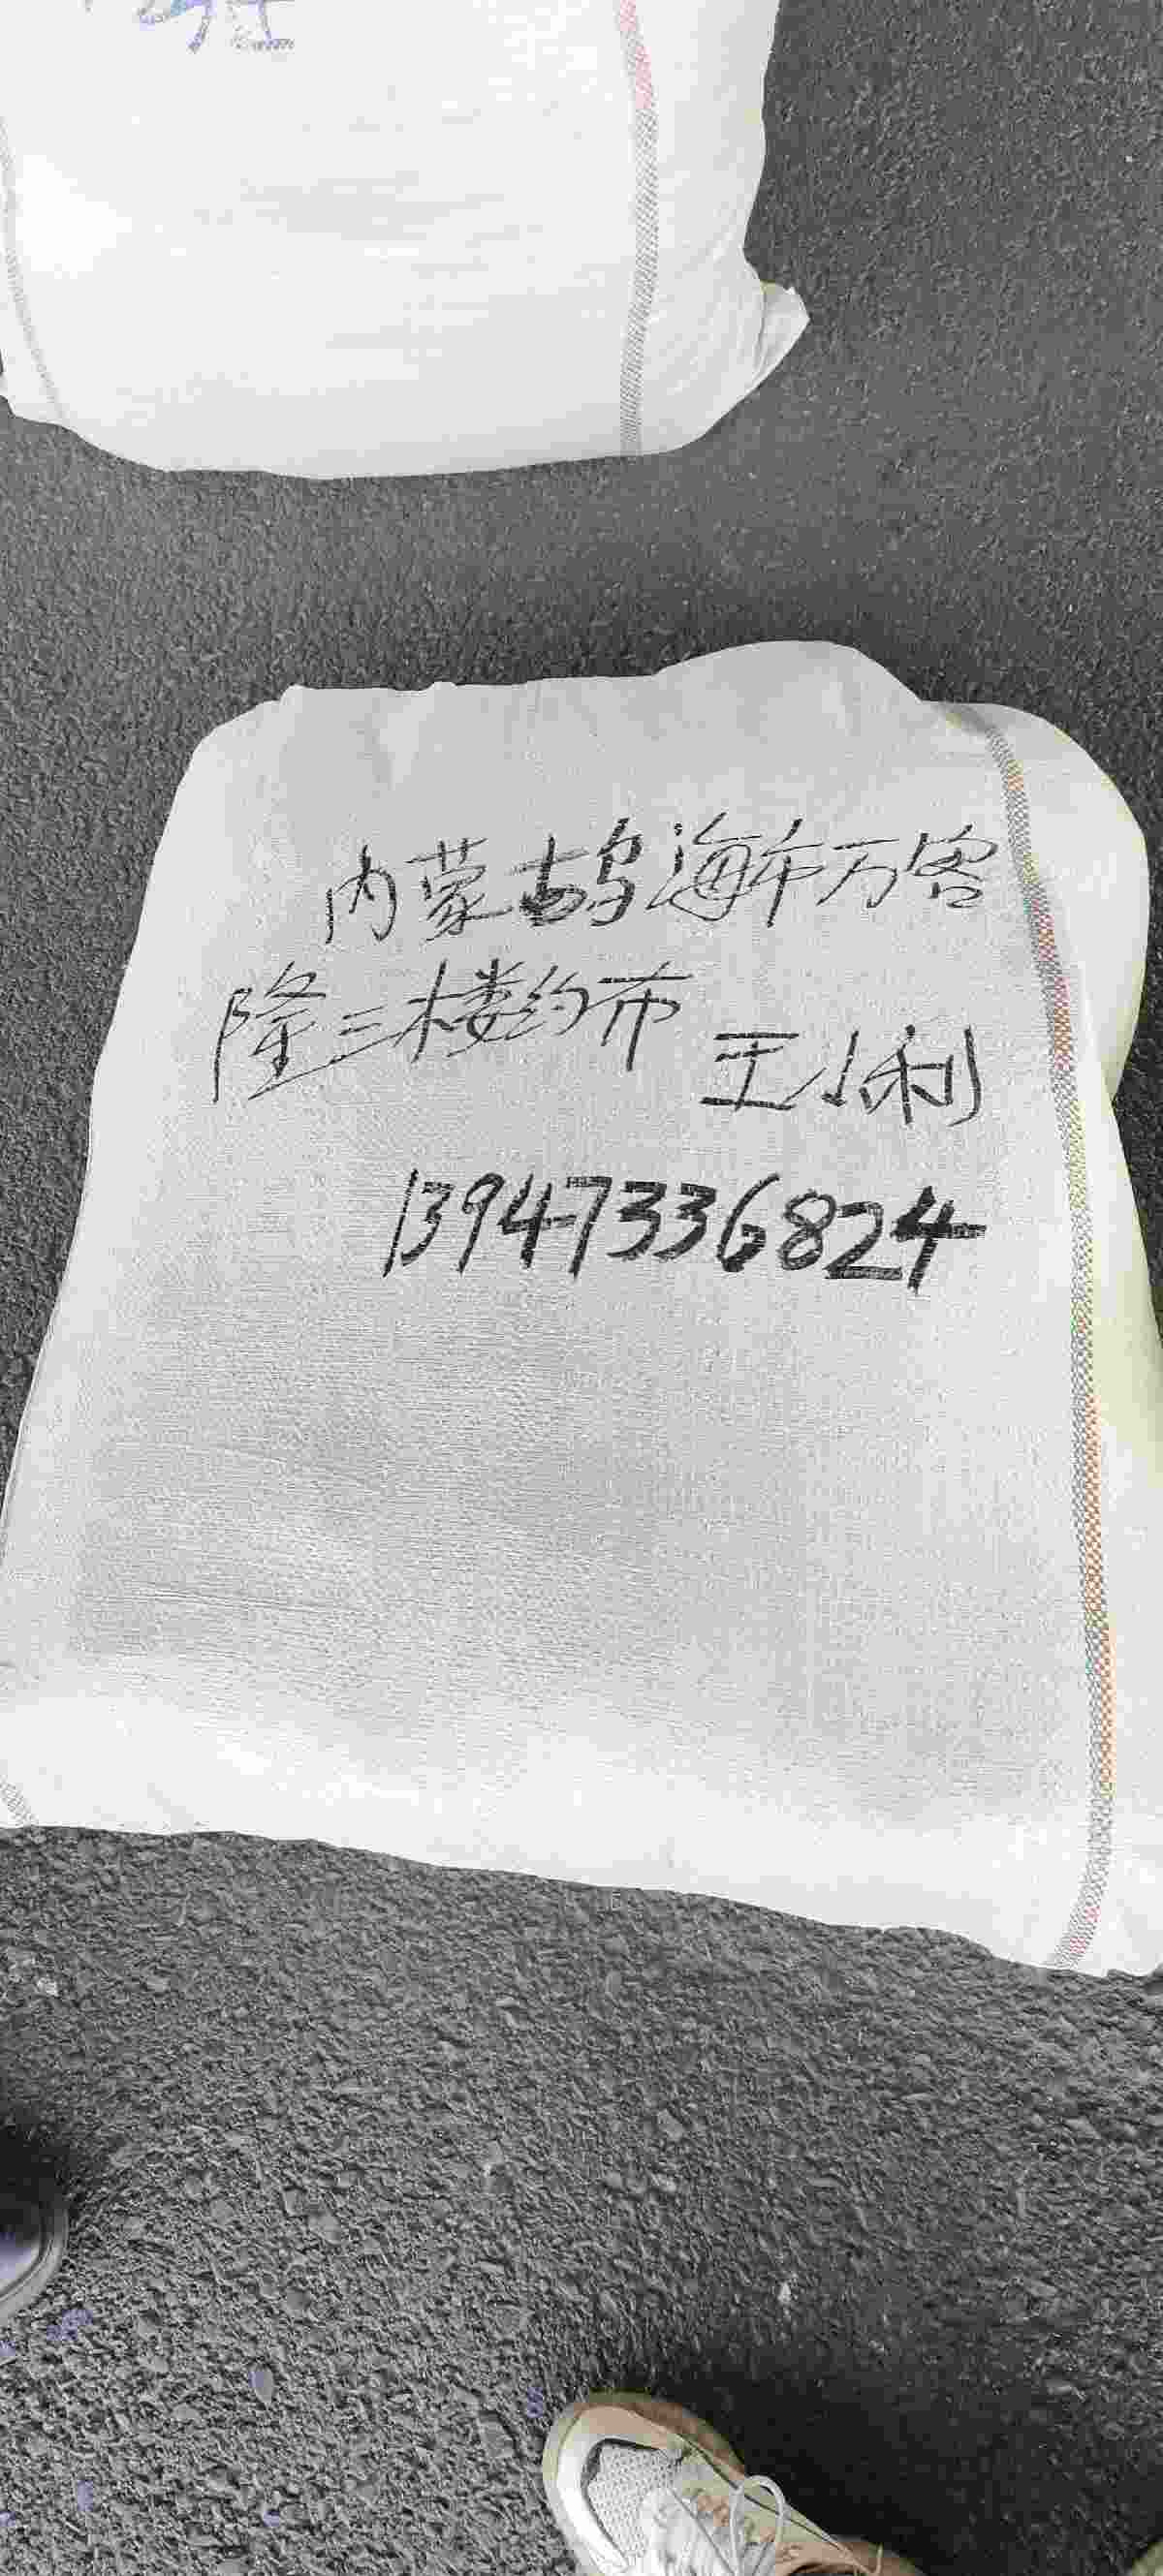 内蒙古乌海市万客
隆三楼约布
王小利
13947336824